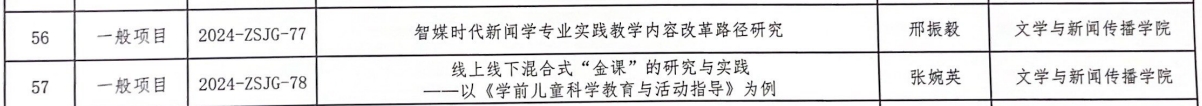 56 一般项目 2024-ZSJG-77 智媒时代新闻学专业实践教学内容改革路径研究 邢振毅 文学与新闻传播学院
57 一般项目 2024-ZSJG-78 线上线下混合式“金课”的研究与实践 张婉英 文学与新闻传播学院
——以《学前儿童科学教育与活动指导》为例